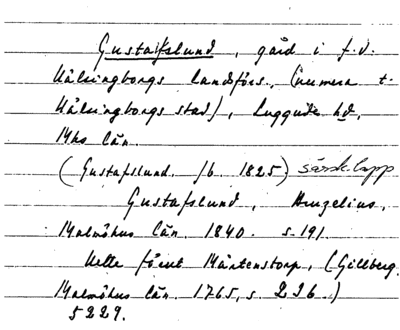 Gustafslund, gård i f.d.
Hälsingborgs landsförs., (numera t.
Hälsingborgs stad), Luggude hd,
Mhs län.
(Gustafslund. jb. 1825) särsk. lapp
Gustafslund, Hruzelius,
Malmöhus län. 1840. s. 191.
Hette förut Mårtenstorp, (Gillberg.
Malmöhus län. 1765, s. 236.)
5229.